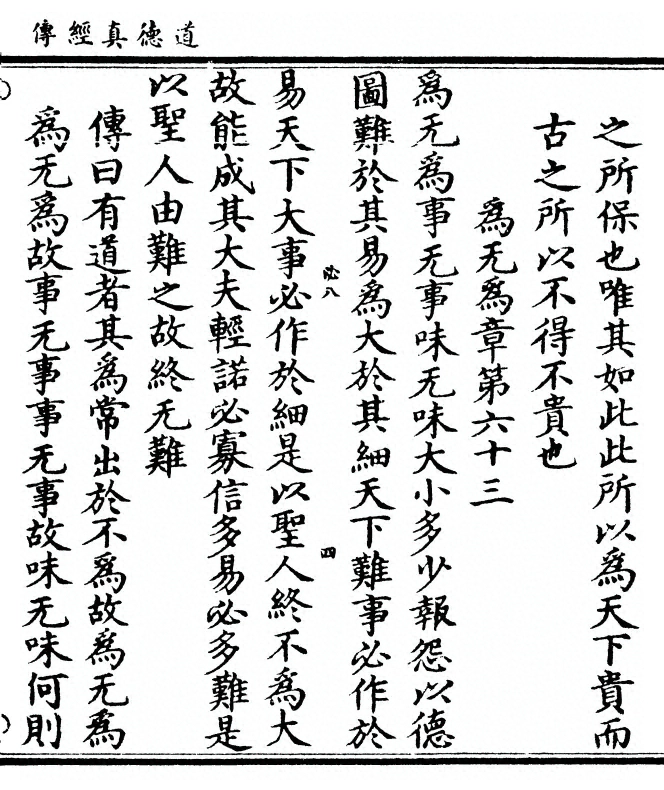 道德真經傳
之所保也唯其如此此所以爲天下貴而
古之所以不得不貴也
爲无爲章第六十三
爲无爲事无事味无味大小多少報怨以德
圖難於其易爲大於其細天下難事必作於
易天下大事必作於細是以聖人終不爲大
必八
四
故能成其大夫輕諾必寡信多易必多難是
以聖人由難之故終无難
傳曰有道者其爲常出於不爲故爲无爲
爲无爲故事无事事无事故味无味何則